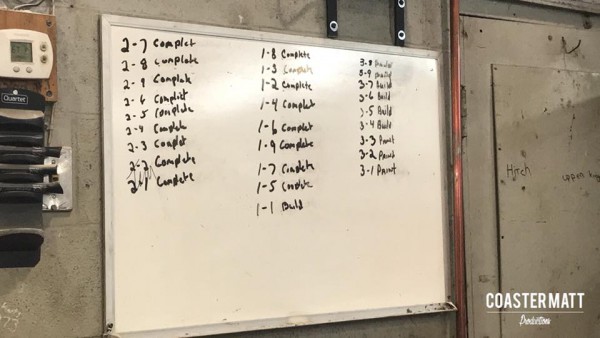 2-7 Complet
2-8 Complete
2-9 Complete
2-6 Complet
2-5 Complete
2-4 Complete
2-3 Complet
2-2 Complete
2-1 Complete
1-8 Complete
1-3 Complete
1-2 Complete
1-4 Complet
1-6 Complet
1-9 Complete
1-7 Complete
1-5 Complete
1-1 Build
3-8 Build
3-9 Build
3-7 Build
3-6 Build
3-5 Build
3-4 Build
3-3 Paint
3-2 Paint
3-1 Paint
Quartet
Hitch
upper
COASTERMATT
Productions